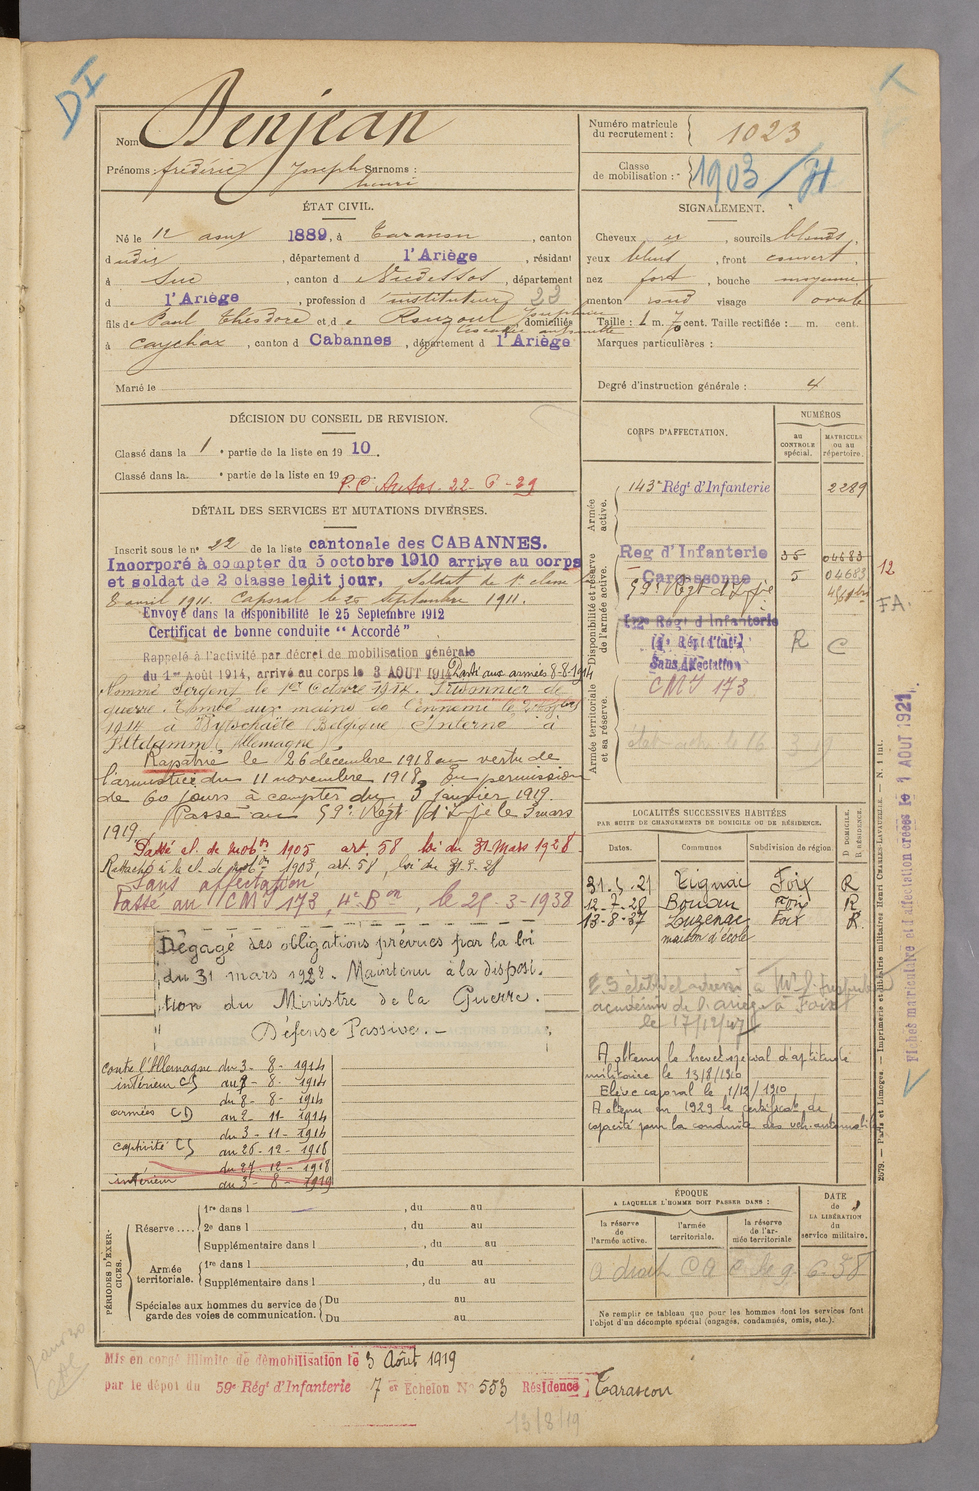 DI
Nom Denjean
Prénoms : frédéric Joseph Surnoms :
henri
Numéro matricule du recrutement : 1023
Classe de mobilisation : 1903 / H
ÉTAT CIVIL.
Né le 12 aout 1889, à Tarascon, canton
dudit, département d l'Ariège, résidant
à Suc, canton d Vicdessos, département
d l'Ariège, profession d instituteur 23
fils de Paul Théodore et de Rouzoul, domiciliés
à Caychax, canton d Cabannes, département d l'Ariège
Marié le
SIGNALEMENT.
Cheveux, sourcils blonds,
yeux bleus, front couvert,
nez fort, bouche moyenne
menton rond visage ovale
Taille : 1 m. 70 cent. Taille rectifiée : m. cent.
Marques particulières :
Degré d'instruction générale : 4
DÉCISION DU CONSEIL DE REVISION.
Classé dans la 1e partie de la liste en 1910.
Classé dans la e partie de la liste en 19
P.C. Autos. 22-6-29
DÉTAIL DES SERVICES ET MUTATIONS DIVERSES.
Inscrit sous le n° 22 de la liste cantonale des CABANNES.
Incorporé à compter du 5 octobre 1910 arrive au corps
et soldat de 2 classe ledit jour, Soldat de 1e classe le
8 avril 1911. Caporal le 25 septembre 1911.
Envoyé dans la disponibilité le 25 Septembre 1912
Certificat de bonne conduite "Accordé"
Rappelé à l'activité par décret de mobilisation générale
du 1er Août 1914, arrivé au corps le 3 AOUT 1914 Passé aux armées 8-8-1914
Nommé Sergent le 1er Octobre 1914. Prisonnier de
guerre. Tombé aux mains de l'ennemi le 2
1914 à Wytschaëte (Belgique) Interné à
Altdamm (Allemagne)
Rapatrié le 26 décembre 1918 en vertu de
l'armistice du 11 novembre 1918. En permission
de 60 jours à compter du 3 janvier 1919.
Passé au 59e Régt d'Infie le 3 mars
1919.
Passé cl. de mobon 1905 art. 58 loi du 31 Mars 1928
Rattaché à la cl. de mobon 1903, art. 58, loi du 31.3.28
Sans affectation
Passé au CMI 173, 4e Bon, le 25-3-1938
Dégagé des obligations prévues par la loi
du 31 mars 1928. Maintenu à la disposi-
tion du Ministre de la Guerre.
Défense Passive.-
CORPS D'AFFECTATION.
NUMÉROS
AU CONTROLE spécial.
MATRICULE OU AU répertoire.
Armée active.
143e Régt d'Infanterie 2289
Disponibilité et réserve de l'armée active.
Reg d'Infanterie 35 04683
Carcassonne 5 04683
59e Régt d'Infie
Régt d'Infanterie
Sans Affectation R C
Armée territoriale et sa réserve.
CMI 173
12
FA.
LOCALITÉS SUCCESSIVES HABITÉES
PAR SUITE DE CHANGEMENTS DE DOMICILE OU DE RÉSIDENCE.
Dates. Communes Subdivision de région D DOMICILE. R RÉSIDENCE.
31-5-21 Tignac Foix R
12-7-25 Bouan Foix R
13-8-37 Luzenac Foix R.
maison d'école
le 17/12/47
A obtenu le brevet spécial d'aptitude
militaire le 13/8/1910
Elève caporal le 1/12/1910
A obtenu en 1929 le certificat de
capacité pour la conduite des véh. automobiles
contre l'Allemagne du 3-8-1914
intérieur CS au 7-8-1914
du 8-8-1914
armées CD au 2-11-1914
du 3-11-1914
captivité CS au 26-12-1918
du 27-12-1918
intérieur du 3-8-1919
PÉRIODES D'EXERCICES.
Réserve .... 1re dans l, du au
2e dans l, du au
Supplémentaire dans l, du au
Armée territoriale. 1re dans l, du au
Supplémentaire dans l, du au
Spéciales aux hommes du service de garde des voies de communication. Du au
Du au
ÉPOQUE
A LAQUELLE L'HOMME DOIT PASSER DANS :
la réserve de l'armée active.
l'armée territoriale.
la réserve de l'armée territoriale
DATE de LA LIBÉRATION du service militaire.
A droit CA
Ne remplir ce tableau que pour les hommes dont les services font
l'objet d'un décompte spécial (engagés, condamnés, omis, etc.).
Mis en congé illimité de démobilisation le 3 Août 1919
par le dépôt du 59e Régt d'Infanterie 7 er Echelon N° 553 Résidence Tarascon
13/8/19
2079. — Paris et Limoges. — Imprimerie et librairie militaires Henri CHARLES-LAVAUZELLE. — N. 1 int.
Fiches matriculaire et d'affectation créées le 1 AOUT 1921.